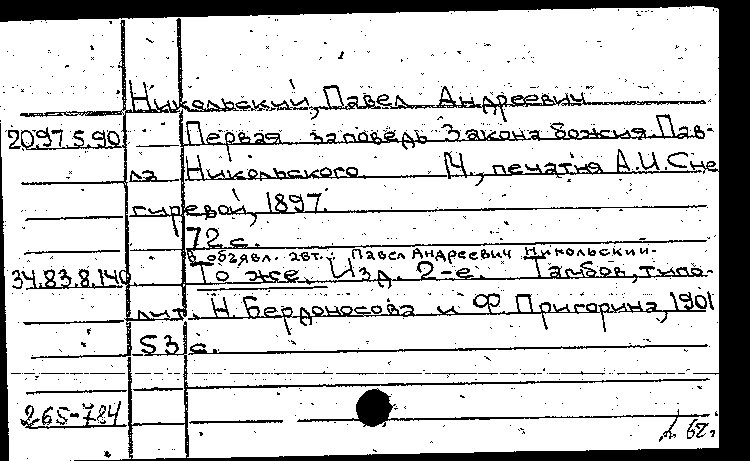 Никольский, Павел Андреевич
20.97.5.90 Первая заповедь Закона божия Пав-
ла Никольского. М., печатня А.И.Сне
гиревой, 1897.
72 с.
В объявл. авт.: Павел Андреевич Никольский.
34.83.8.140 То же. Изд. 2-е. Тамбов, типо-
лит. Н. Бердоносова и Ф Пригорина, 1901
53 с.
265-784
62